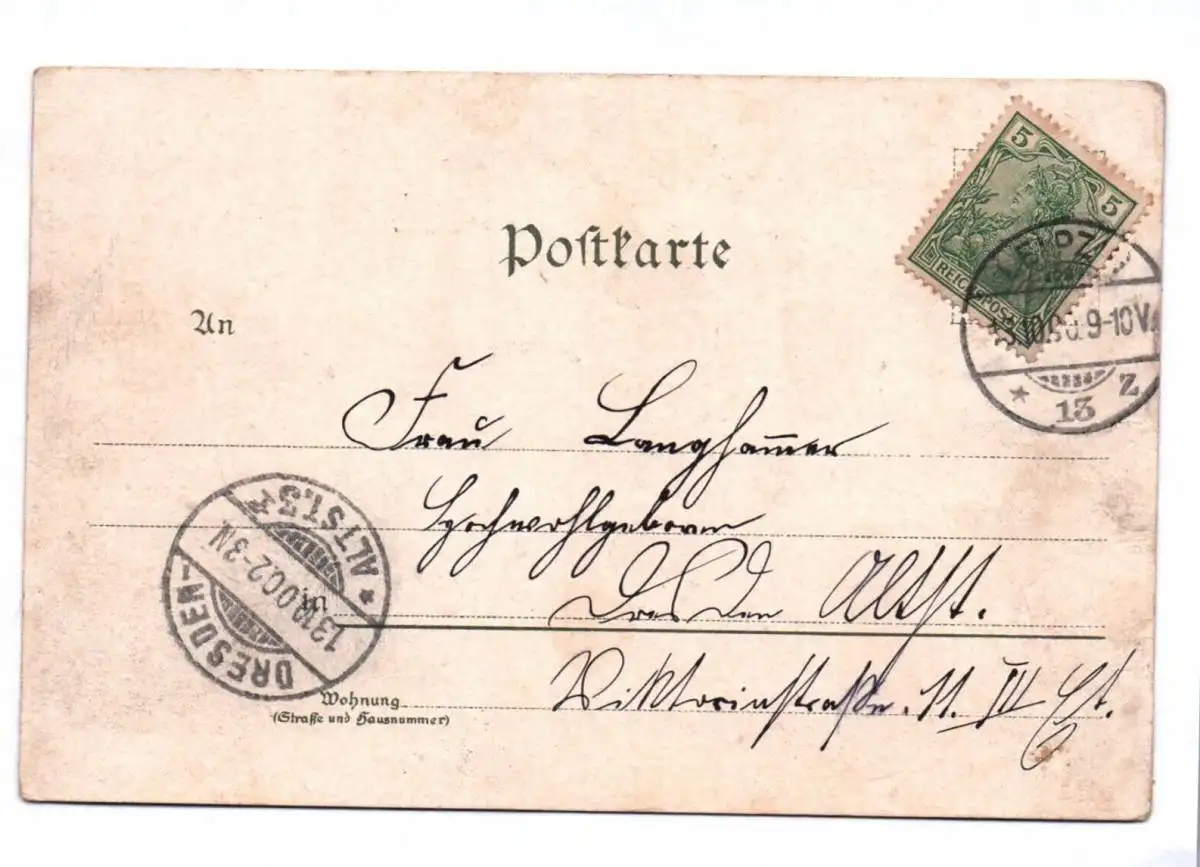 Postkarte
5
5
REICHSPOST
LEIPZIG
10.00.9-10V.
* 13 Z
An
Frau Langham̄er
Hochwohlgeboren
Dresden Altst.
Viktoriastraße. 11. III Et.
DRESDEN-
13.10.00.2-3N.
* ALTST.
in
Wohnung
(Straße und Hausnummer)